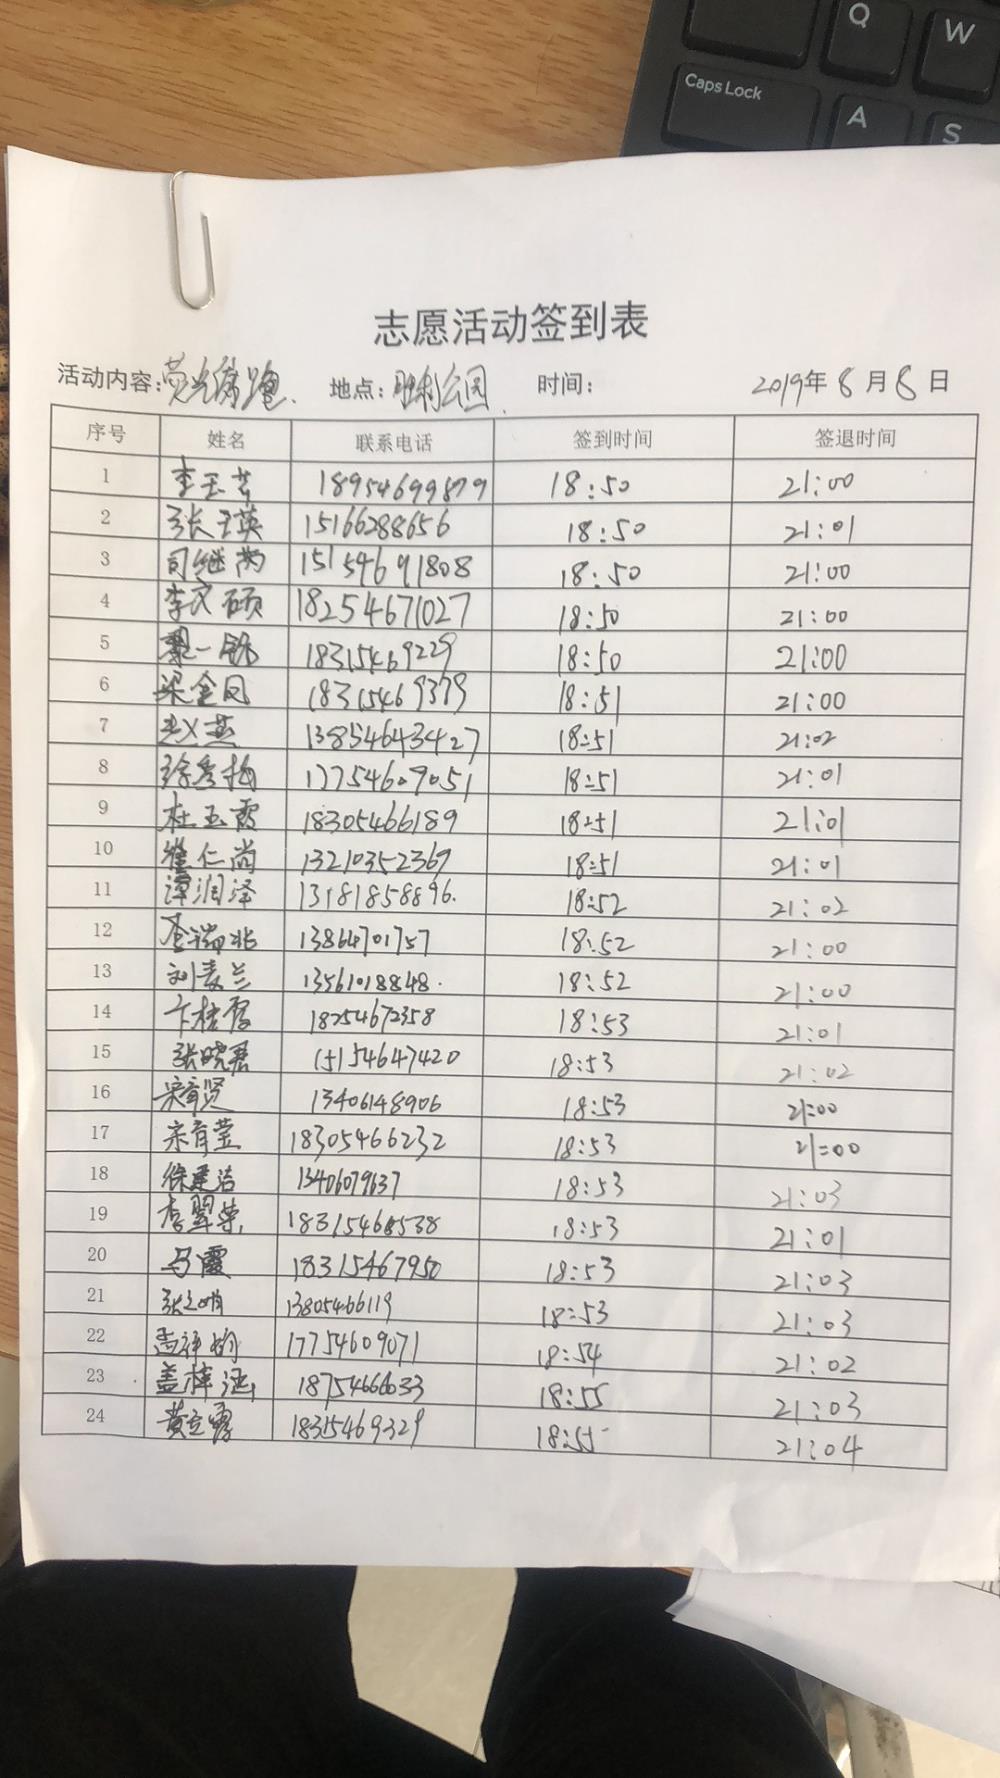 Q
W
Caps Lock
A
S
志愿活动签到表
活动内容：荧光夜跑. 地点：胜利公园. 时间： 2019年8月8日
序号 姓名 联系电话 签到时间 签退时间
1 李玉芳 18954699879 18:50 21:00
2 张玉英 15166288656 18:50 21:01
3 司继芮 15154691808 18:50 21:00
4 李文硕 18254671027 18:50 21:00
5 18315469229 18:50 21:00
6 梁金凤 18315469379 18:51 21:00
7 赵义燕 13854643427 18:51 21:02
8 徐秀梅 17754609051 18:51 21:01
9 杜玉霞 18305466189 18:51 21:01
10 崔仁尚 13210352369 18:51 21:01
11 谭润泽 13181858896. 18:52 21:02
12 13864701757 18:52 21:00
13 刘麦兰 13561018848. 18:52 21:00
14 卞桂霞 18254672358 18:53 21:01
15 张晓君 15154647420 18:53 21:02
16 宋育贤 13406148906 18:53 21:00
17 宋育莹 18305466232 18:53 21:00
18 徐建洁 13406079637 18:53 21:03
19 李翠荣 18315468538 18:53 21:01
20 马霞 18315467950 18:53 21:03
21 13805466119 18:53 21:03
22 17754609071 18:54 21:02
23 盖梓涵 18754666033 18:55 21:03
24 黄立霞 18315469329 18:55 21:04